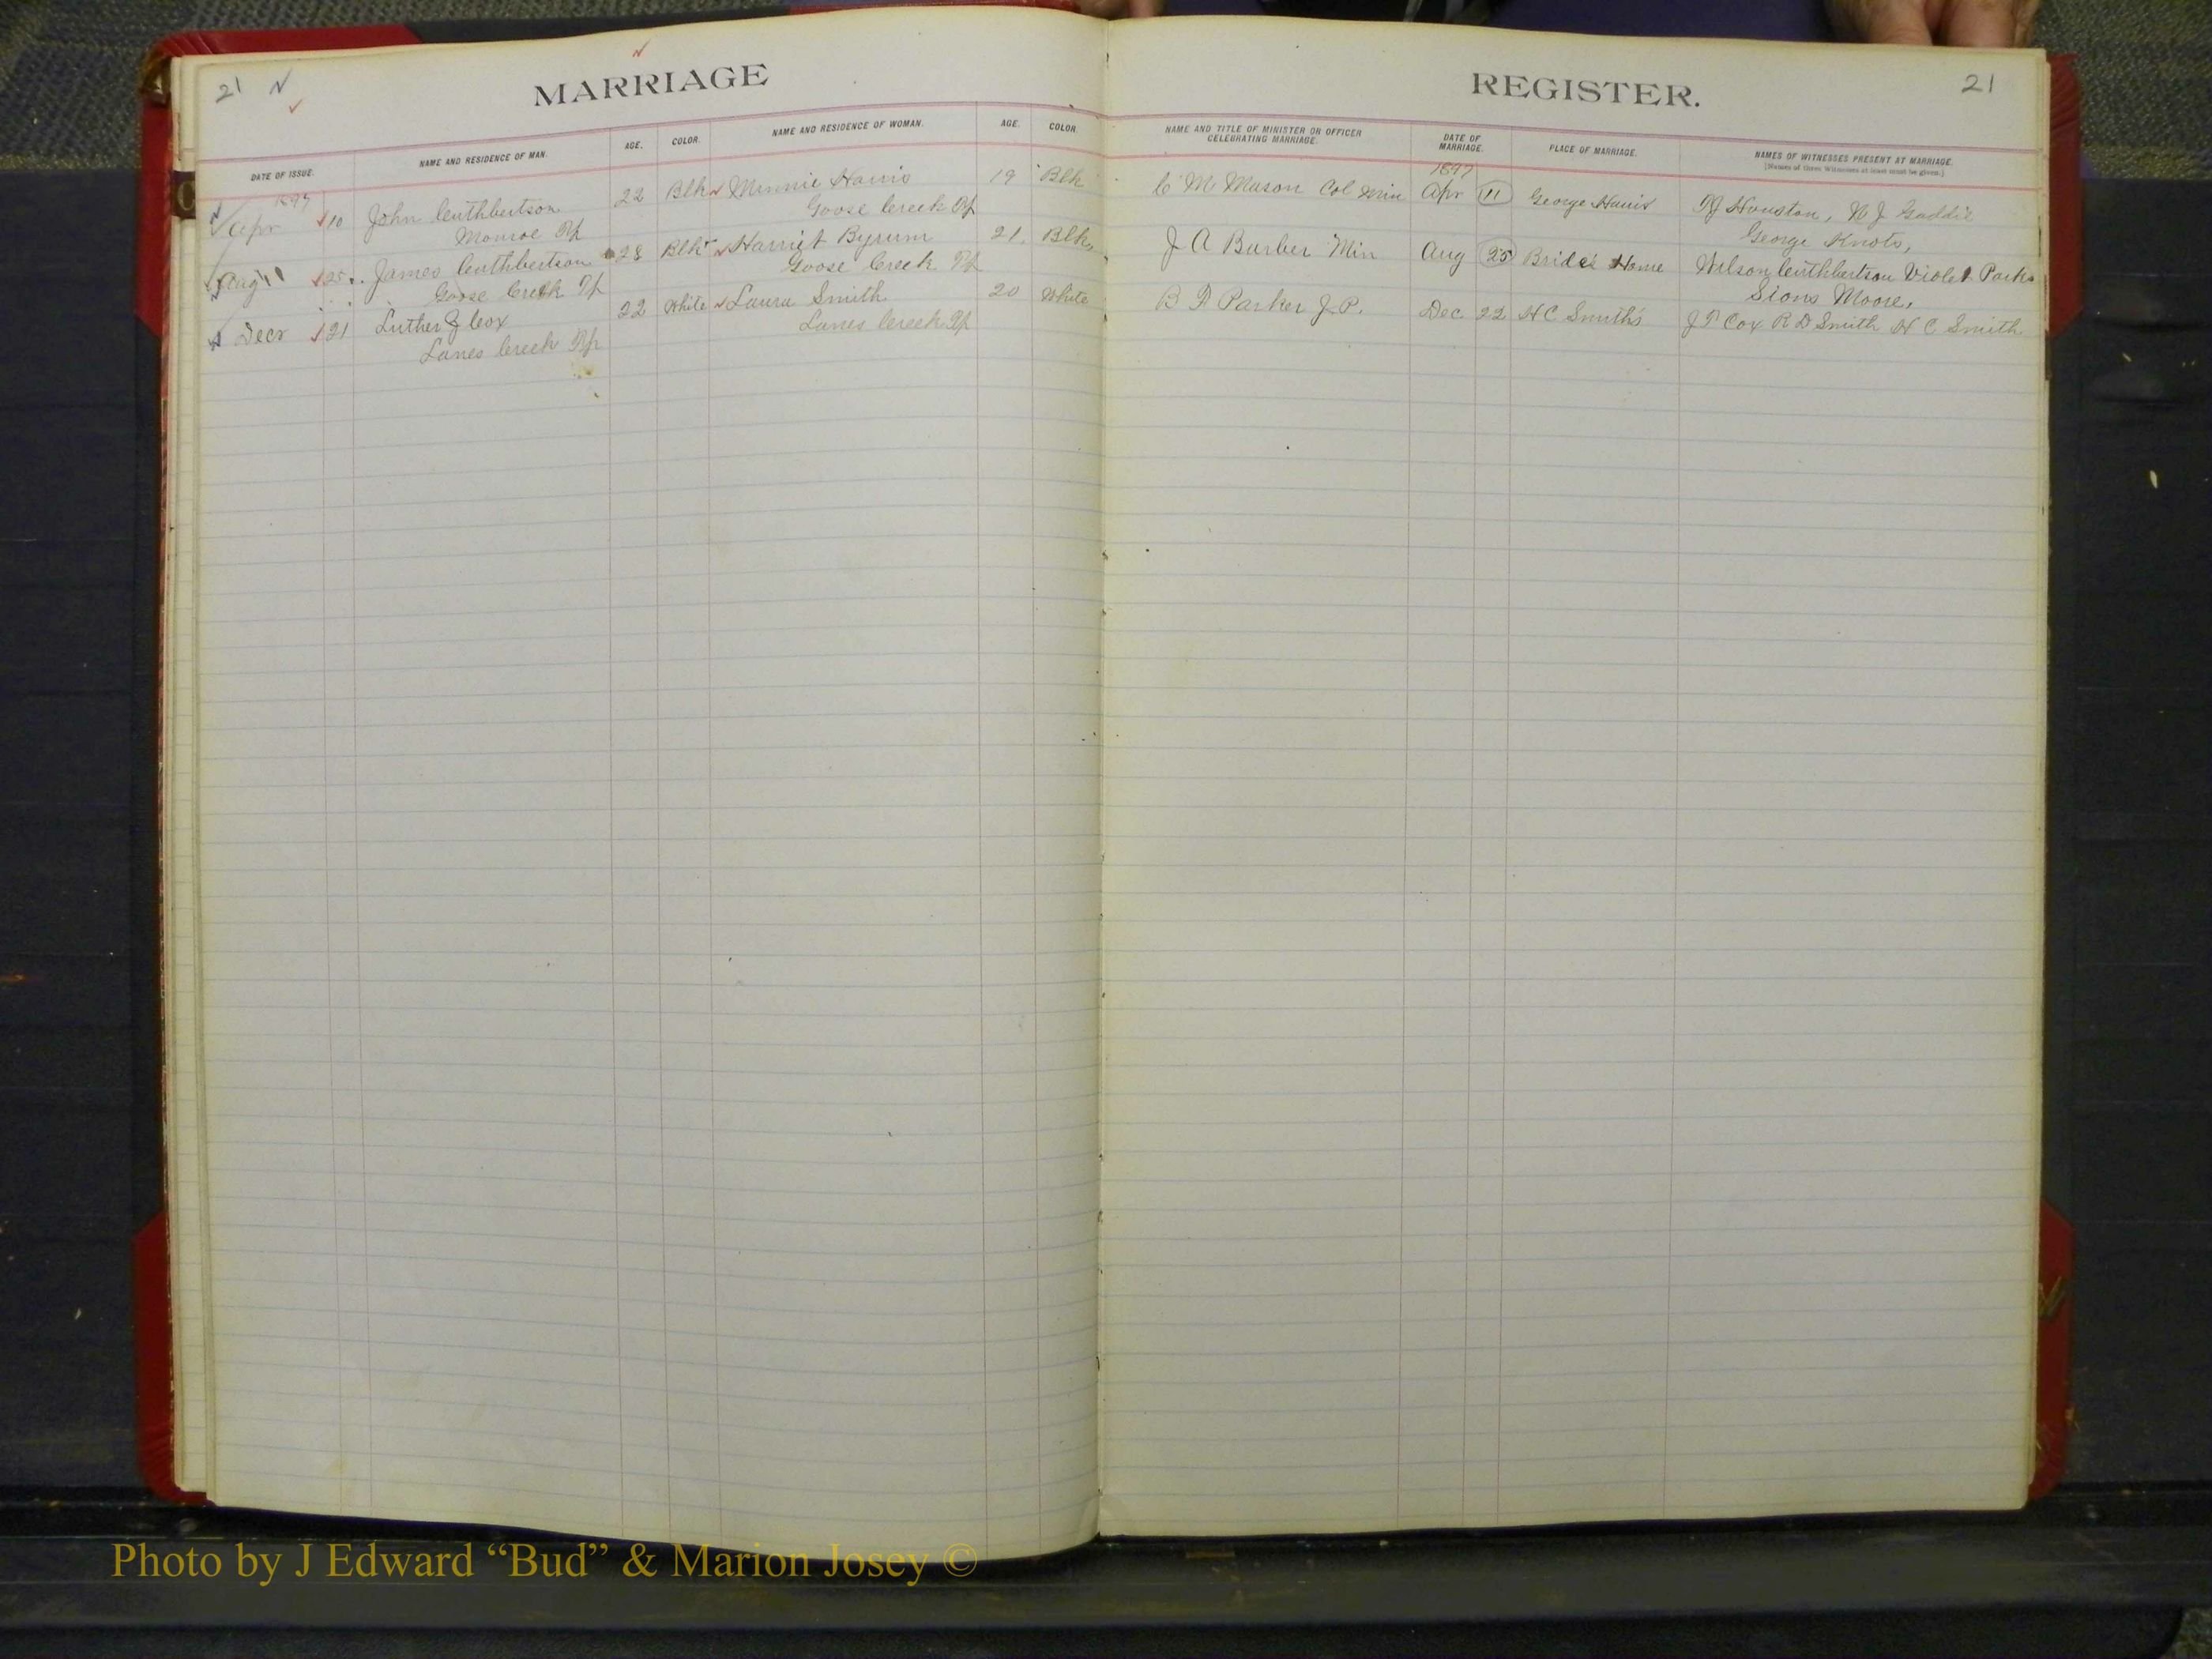 21 N
MARRIAGE
DATE OF ISSUE. NAME AND RESIDENCE OF MAN. AGE. COLOR. NAME AND RESIDENCE OF WOMAN. AGE. COLOR.
1897
Apr 10 John Cuthbertson 22 Blk Minnie Harris 19 Blk
Monroe Tp Goose Creek Tp
Aug 25 James Cuthbertson 28 Blk Harriet Byrum 21 Blk
Goose Creek Tp Goose Creek Tp
Decr 21 Luther J Cox 22 White Laura Smith 20 White
Lanes Creek Tp Lanes Creek Tp
REGISTER.
21
NAME AND TITLE OF MINISTER OR OFFICER CELEBRATING MARRIAGE. DATE OF MARRIAGE. PLACE OF MARRIAGE. NAMES OF WITNESSES PRESENT AT MARRIAGE.
[Names of three Witnesses at least must be given.]
1897
C M Mason Col Min Apr 11 George Harris Houston, N J Gaddie
George Knots,
J A Barber Min Aug 25 Bride's Home Wilson Cuthbertson Violet Parks
Sions Moore,
B F Parker J.P. Dec. 22 H C Smith's J T Cox R D Smith H C Smith
Photo by J Edward “Bud” & Marion Josey ©